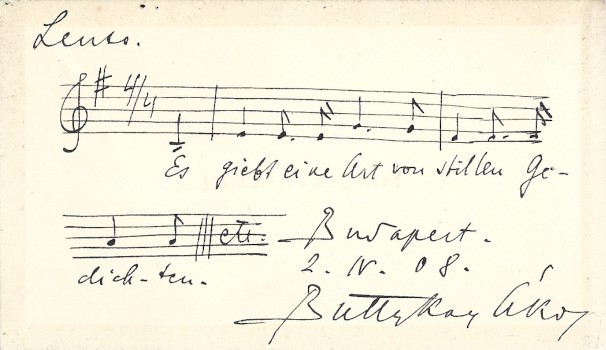 Lento.
4/4
Es giebt eine Art von stillen Ge-
etc. Budapest.
dich-ten. 2. IV. 08.
Buttykay Ákos